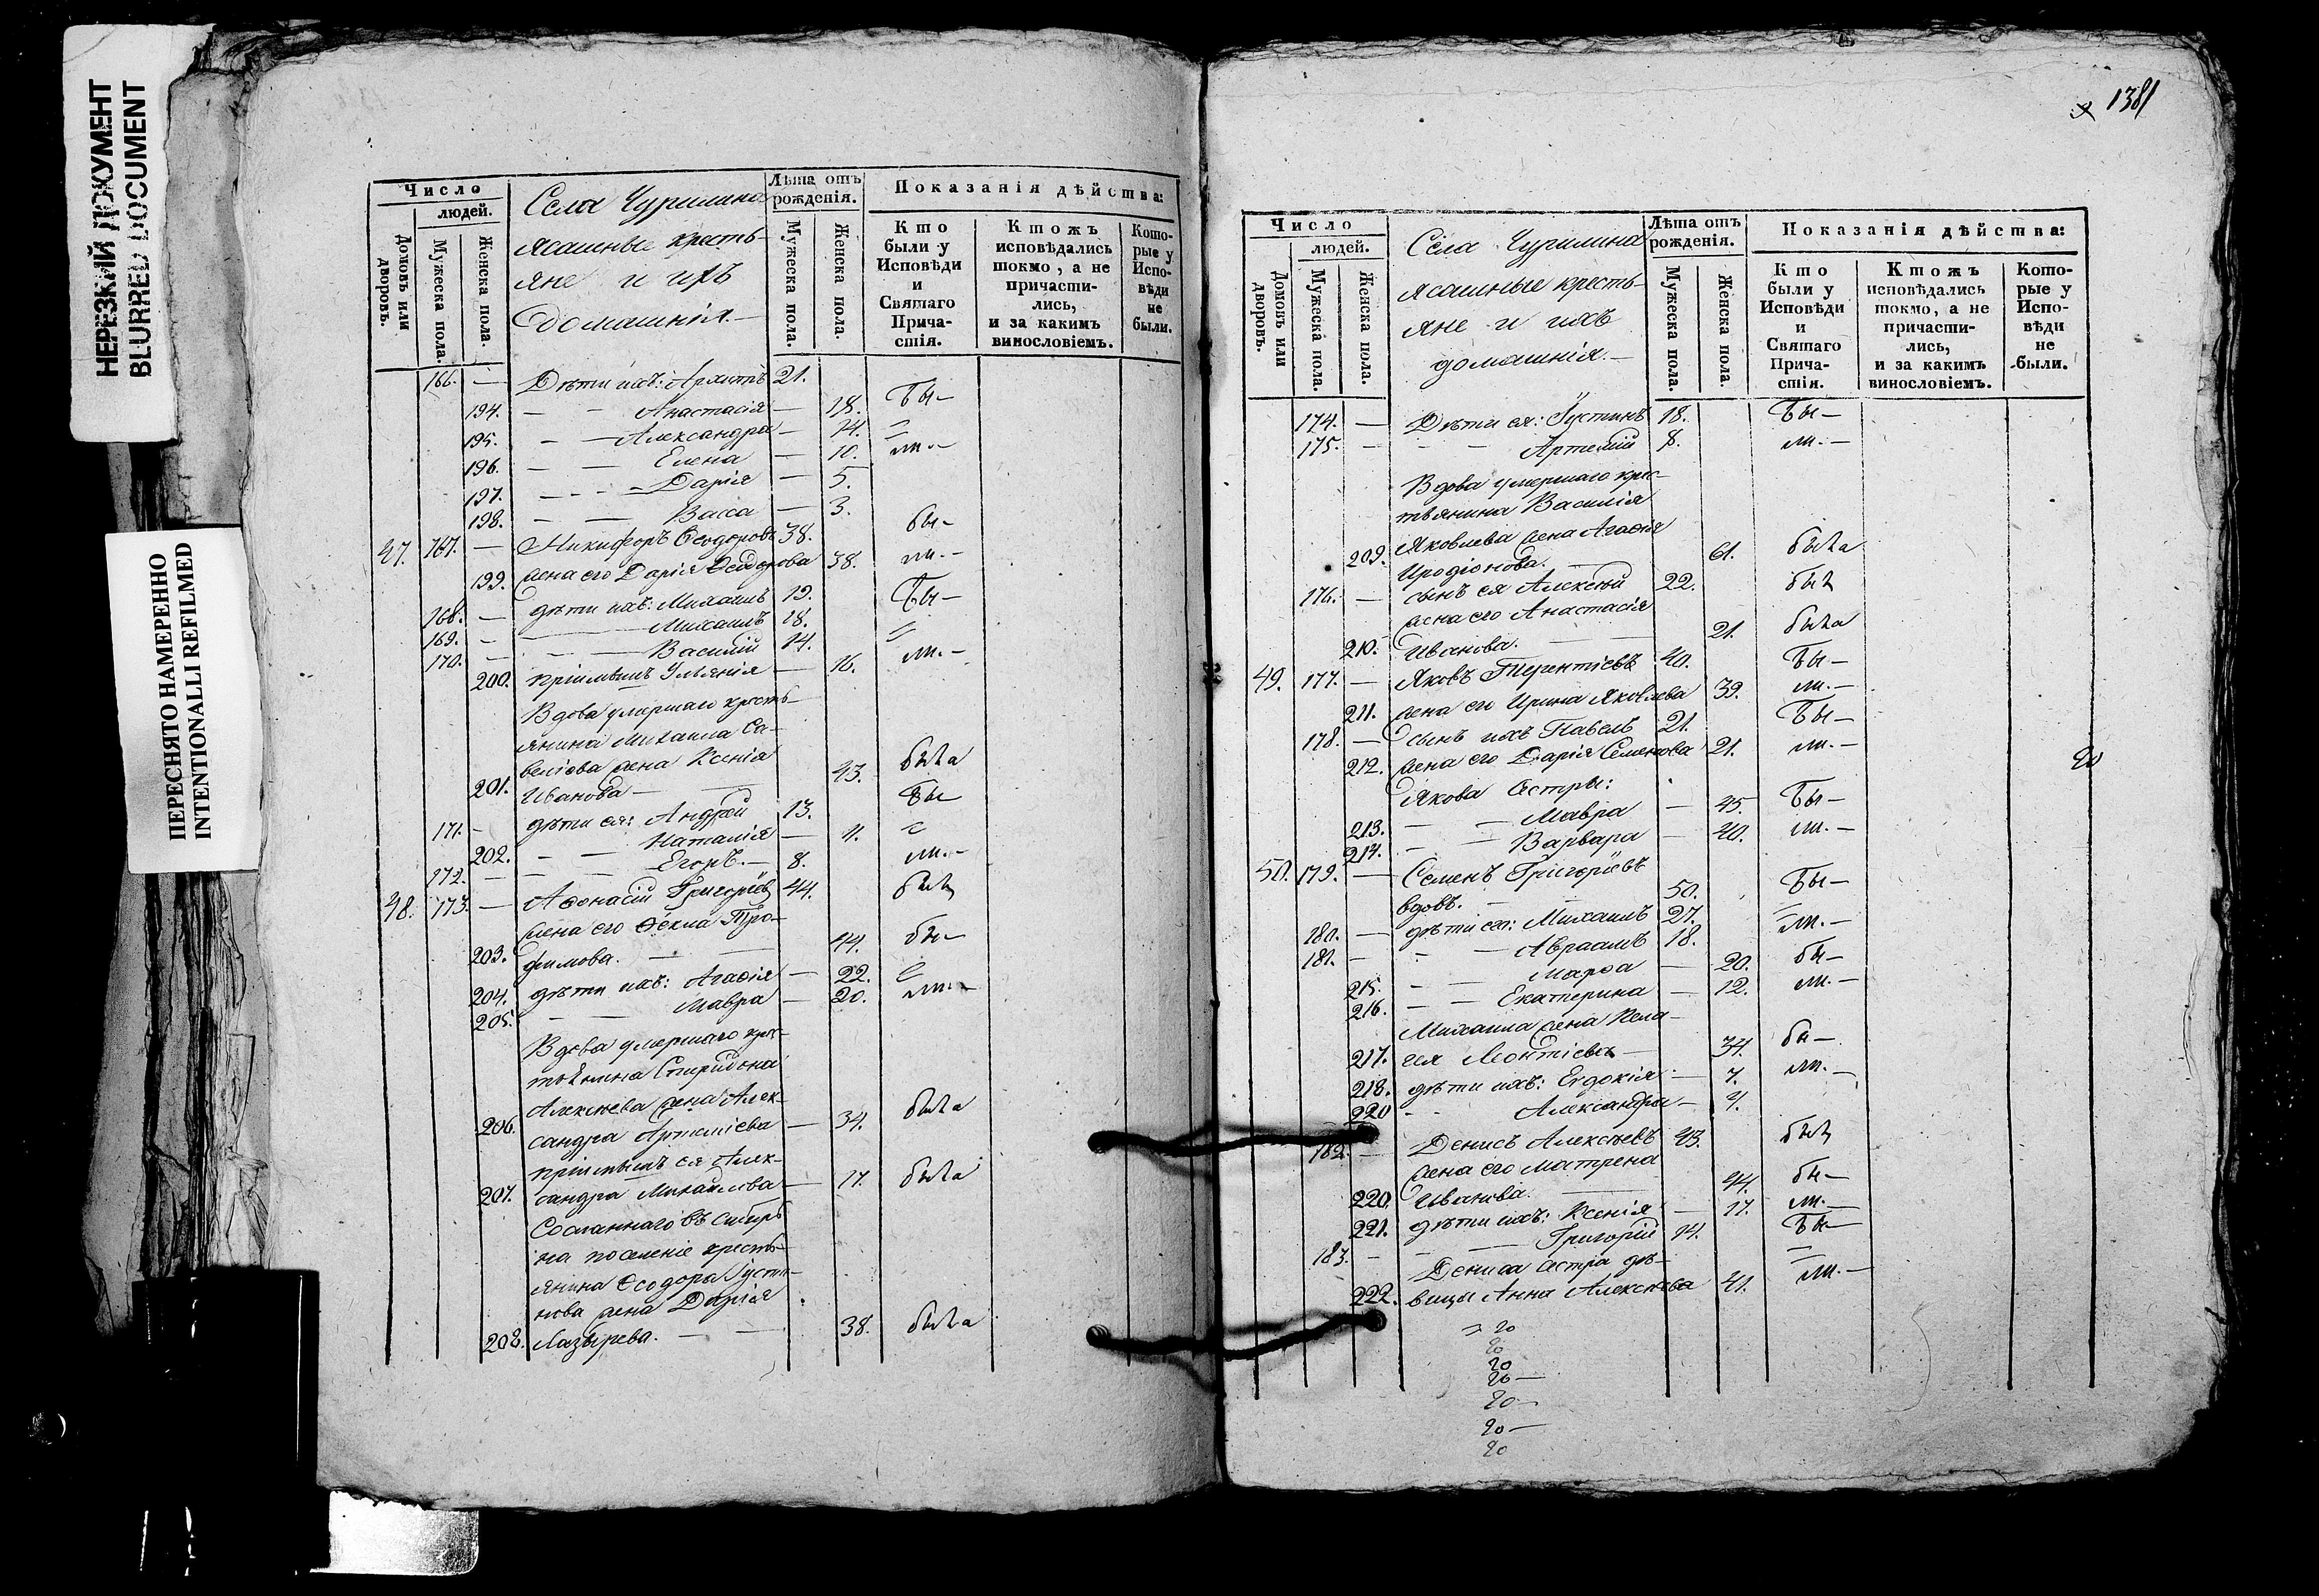 НЕРЕЗКИЙ ДОКУМЕНТ
BLURRED DOCUMENT
ПЕРЕСНЯТО НАМЕРЕННО
INTENTIONALLI REFILMED
Число
людей.
Домовъ или дворовъ.
Мужеска пола.
Женска пола.
Села Чурилина
ясашные кресть-
яне и ихъ
домашнія.—
Лѣта отъ рожденія.
Мужеска пола.
Женска пола.
Показанія дѣйства:
Кто были у Исповѣди и Святаго Прича-стія.
Ктожъ исповѣдались токмо, а не причасти-лись, и за какимъ винословіемъ.
Кото-рые у Испо-вѣди не были.
166. — Дѣти ихъ: Архипъ 21.
194. — — Анастасія — 18. Бы—
195. — — Александра — 14. =
196. — — Елена — 10. ли.—
197. — — — Дарія — 5.
198. — — Васса — 3.
47. 167. — Никифоръ Ѳеодоровъ 38. бы—
199. жена его Дарія Ѳеодорова 38. ли.—
168. — дѣти ихъ: Михаилъ 19. Бы—
169. — — Михаилъ 18. =
170. — — Василій 14. ли.—
200. пріимышъ Ульянія — 16.
Вдова умершаго кресть-
янина Михаила Са-
веліева жена Ксенія
201. Иванова — — 43. была
171. — дѣти ея: Андрей 13. Бы—
202. — — Наталія — 11. =
172. — — — Егоръ.— 8. ли.—
48. 173. — Аѳонасій Григорьевъ 44. былъ
жена его Ѳекла Тро-
203. фимова. — — 44. бы—
204. дѣти ихъ: Агаѳія — 22. =
205. — — Мавра — 20. ли.—
Вдова умершаго крес-
тьянина Спиридона
Алексѣева жена Алек-
206. сандра Артеміева — 34. была
пріимышъ ея Алек-
207. сандра Михайлова — 17. была
Сосланнаго въ сибирь
на поселеніе кресть-
янина Ѳеодора Густи-
нова жена Дарія
208. Лазырева. — — 38. была
1381
Число
людей.
Домовъ или дворовъ.
Мужеска пола.
Женска пола.
Села Чурилина
ясашные кресть-
яне и ихъ
домашнія.—
Лѣта отъ рожденія.
Мужеска пола.
Женска пола.
Показанія дѣйства:
Кто были у Исповѣди и Святаго Прича-стія.
Ктожъ исповѣдались токмо, а не причасти-лись, и за какимъ винословіемъ.
Кото-рые у Испо-вѣди не были.
174. — Дѣти ея: Густинъ 18. Бы—
175. — — Артемій 8. ли.—
Вдова умершаго крес-
тьянина Василія
Яковлева жена Агаѳія
209. Иродіонова. — 61. была
176. — сынъ ея Алексѣй 22. былъ
жена его Анастасія
210. Иванова. — — 21. была
49. 177. — Яковъ Терентіевъ 40. Бы—
211. жена его Ирина Яковлева 39. ли.—
178. — сынъ ихъ Павелъ 21. Бы—
212. жена его Дарія Семенова 21. ли.—
Якова сестры:
213. — — Мавра — 45. Бы—
214. — — Варвара — 40. ли.—
50. 179. — Семенъ Григорьевъ
вдовъ. — — 50. Бы—
180. — дѣти его: Михаилъ 27. =
181. — — — Авраамъ 18. ли.—
215. — — Марѳа — 20. бы—
216. — — Екатерина — 12. ли.—
Михаила жена Пела-
217. гея Леонтіева — 34. бы—
218. дѣти ихъ: Евдокія — 7. ли.—
220 — — Александра — 4.
182. — Денисъ Алексѣевъ 43. былъ
жена его Матрена
220. Иванова. — 44. бы—
221. дѣти ихъ: Ксенія — 17. ли.—
183. — — — Григорій 14. Бы—
Дениса сестра дѣ-
222. вица Анна Алексѣева 41. ли.—
20
20
20
20—
20—
20—
20